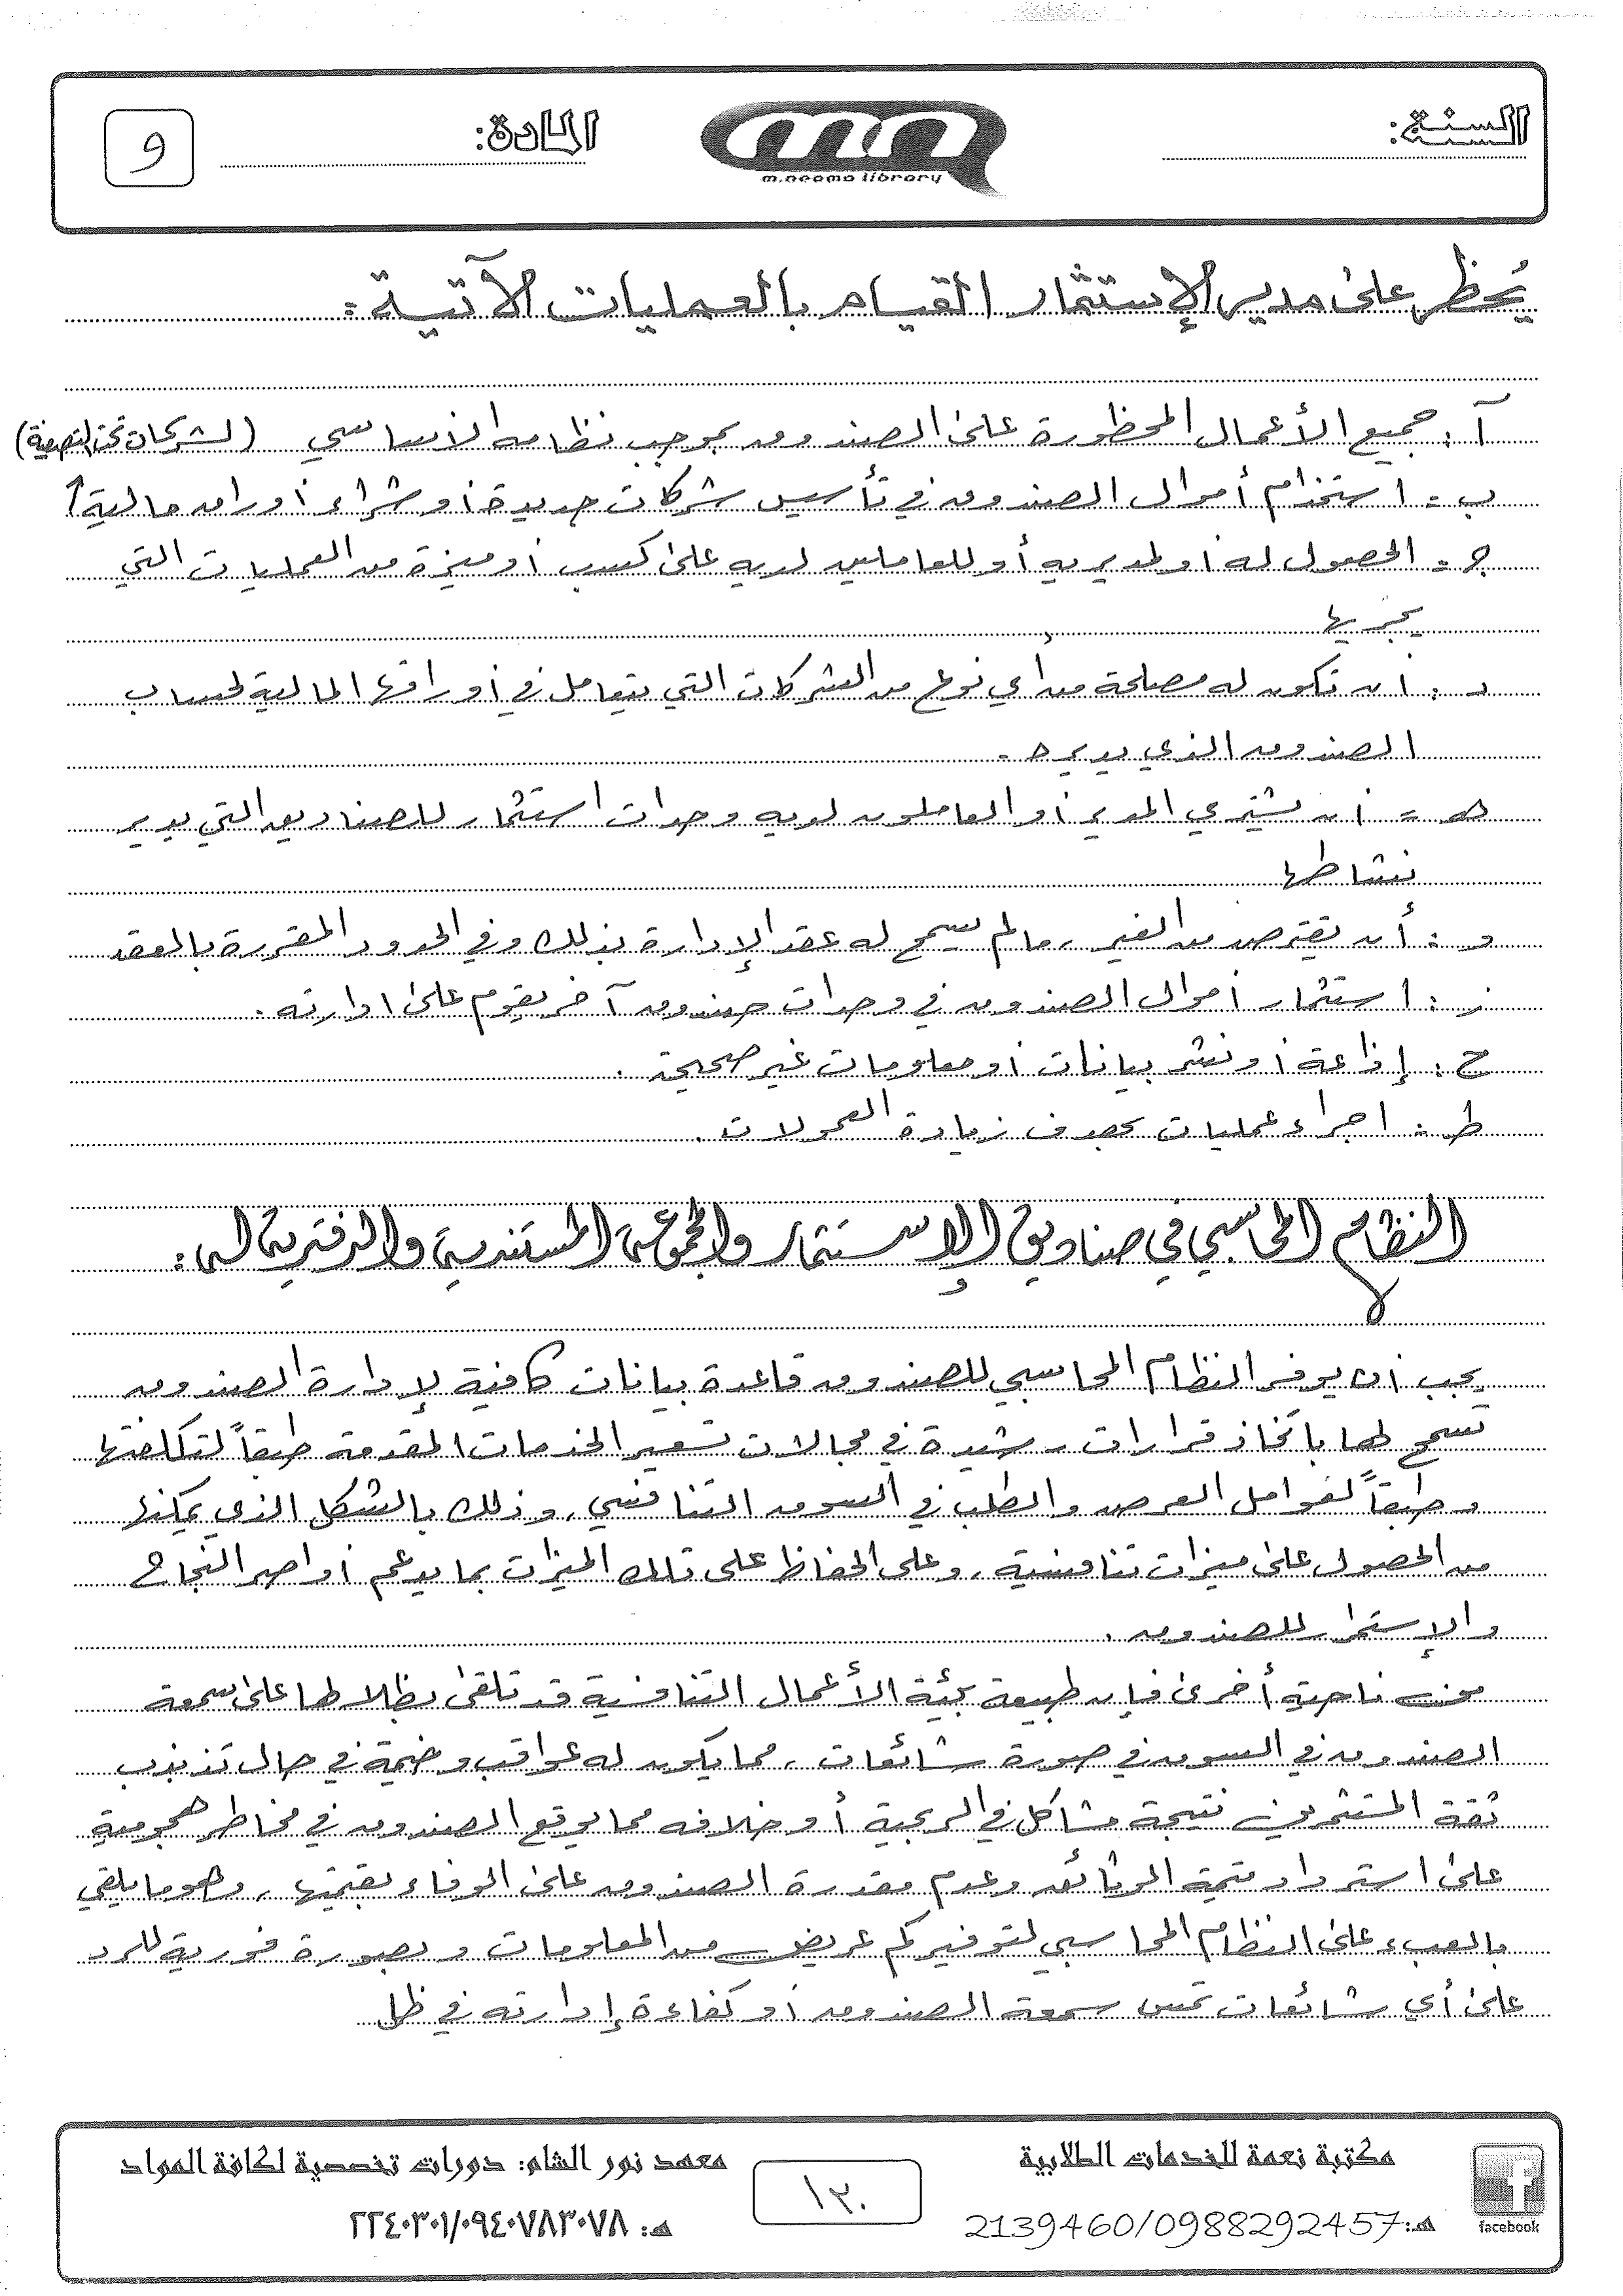 السنة:
m.neama library
المادة:
و
يُحظر على مدير الإستثمار القيام بالعمليات الآتية:
آ: جميع الأعمال المحظورة على الصندوق بموجب نظامه الاساسي (لشركات تحت التصفية)
ب: استخدام أموال الصندوق في تأسيس شركات جديدة أو شراء أوراق مالية↑
ج: الحصول له أو لمديريه أو للعاملين لديه على كسب أو ميزة من العمليات التي
يجريها
د: أن تكون له مصلحة من أي نوع من الشركات التي يتعامل في أوراقها المالية لحساب
الصندوق الذي يديره.
هـ: أن يشتري المدير أو العاملون لديه وحدات استثمار للصناديق التي يدير
نشاطها
و: أن يقترض من الغير، مالم يسمح له عقد الإدارة بذلك وفي الحدود المقررة بالعقد
ز: استثمار أموال الصندوق في وحدات صندوق آخر يقوم على ادارته.
ح: إذاعة أو نشر بيانات أو معلومات غير صحيحة.
ط: اجراء عمليات بهدف زيادة العمولات.
النظام المحاسبي في صناديق الإستثمار والمجموعة المستندية والدفترية له:
يجب أن يوفر النظام المحاسبي للصندوق قاعدة بيانات كافية لإدارة الصندوق
تسمح لها باتخاذ قرارات رشيدة في مجالات تسعير الخدمات المقدمة طبقاً لتكلفتها
وطبقاً لعوامل العرض والطلب في السوق التنافسي، وذلك بالشكل الذي يمكنها
من الحصول على ميزات تنافسية، وعلى الحفاظ على تلك الميزات بما يدعم أواصر النجاح
والإستمرار للصندوق.
من ناحية أخرى فإن طبيعة بيئة الأعمال التنافسية قد تلقى بظلالها على سمعة
الصندوق في السوق في صورة شائعات، مما يكون له عواقب وخيمة في حال تذبذب
ثقة المستثمرين نتيجة مشاكل في الربحية أو خلافه مما يوقع الصندوق في مخاطر هجومية
على استرداد قيمة الوثائق وعدم مقدرة الصندوق على الوفاء بقيمتها، وهو ما يلقي
بالعبء على النظام المحاسبي لتوفير كم عريض من المعلومات وبصورة فورية للرد
على أي شائعات تمس سمعة الصندوق أو كفاءة إدارته في ظل
facebook
مكتبة نعمة للخدمات الطلابية
هـ:2139460/0988292457
١٢٠
معهد نور الشام: دورات تخصصية لكافة المواد
هـ: ٢٢٤٠٣٠١/٠٩٤٠٧٨٣٠٧٨